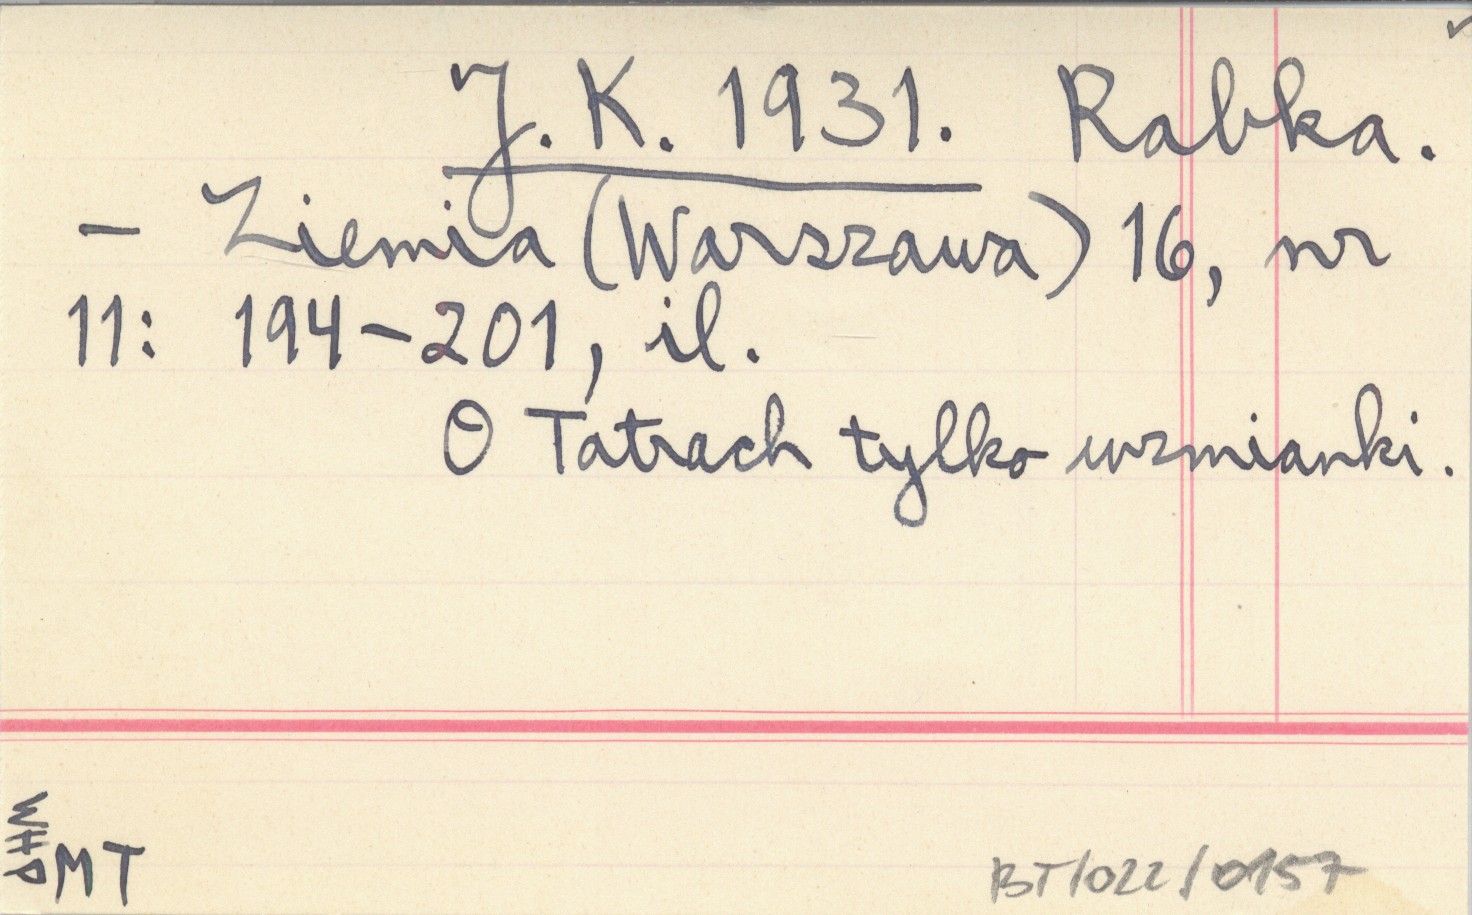 J. K. 1931. Rabka.
— Ziemia (Warszawa) 16, nr
11: 194–201, il.
O Tatrach tylko wzmianki.
MT
BT/022/0157